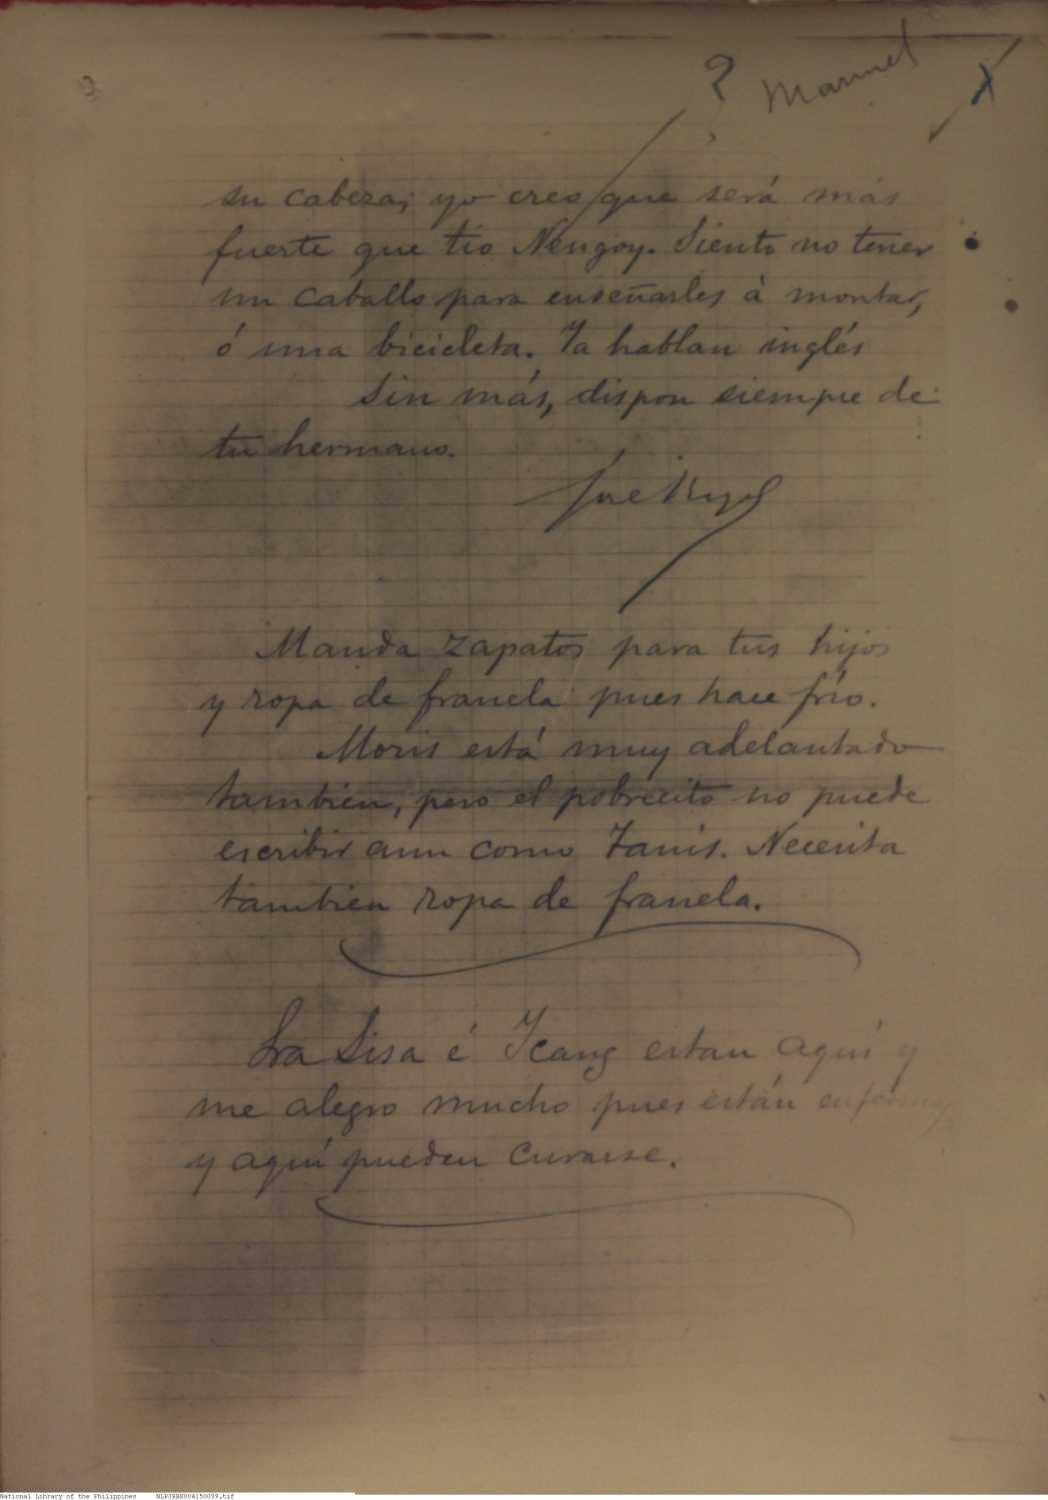 ? Manuel
su cabeza; yo creo que será más
fuerte que tio Nengoy. Siento no tener
un caballo para enseñarles à montar,
ó una bicicleta. Ya hablan inglés
Sin más, dispon siempre de
tu hermano.
José Rizal
Manda zapatos para tus hijos
y ropa de franela pues hace frío.
Moris está muy adelantado
tambien, pero el pobrecito no puede
escribir aun como Tanis. Necesita
tambien ropa de franela.
Sra Sisa é Icang estan aquí y
me alegro mucho pues están enfermas
y aquí pueden curarse.
National Library of the Philippines